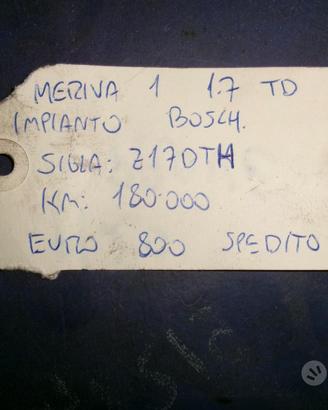 MERIVA 1 1.7 TD
IMPIANTO BOSCH.
SIGLA: Z17DTH
KM: 180.000
EURO 800 SPEDITO